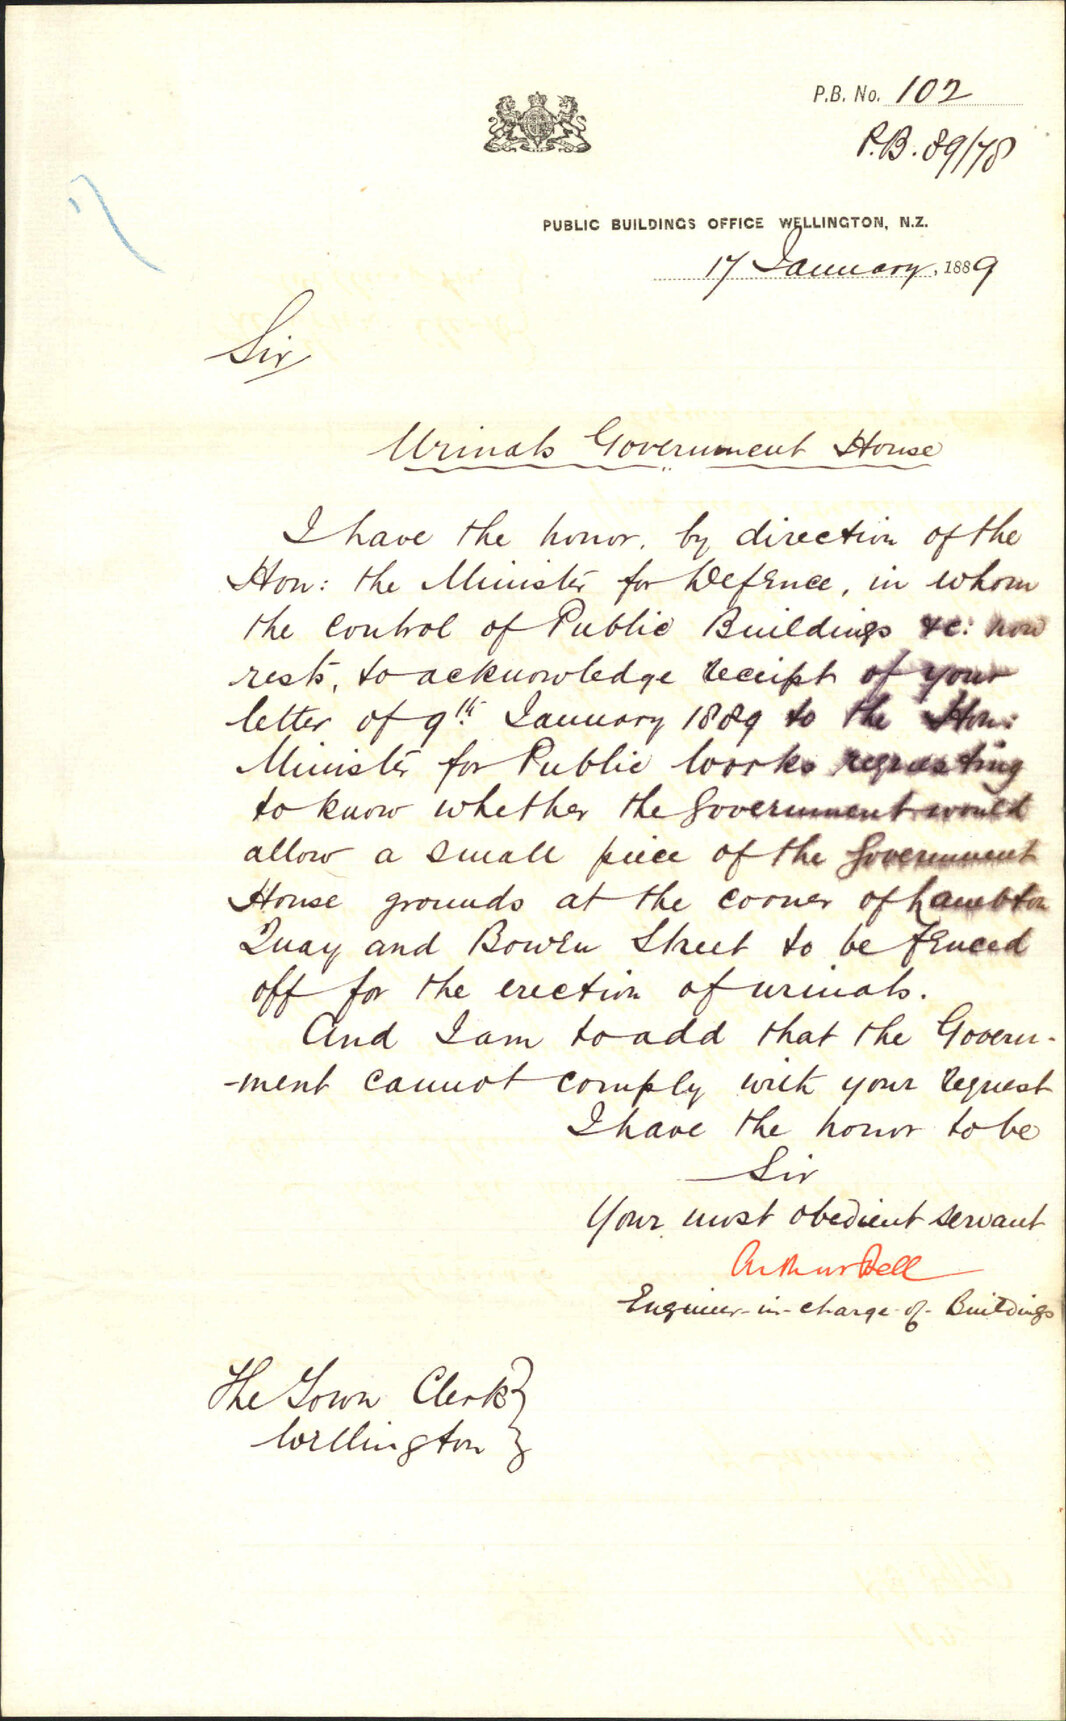 P.B. No. 102
P.B. 89/78
PUBLIC BUILDINGS OFFICE WELLINGTON, N.Z.
17 January, 1889
Sir
Urinals Government House
I have the honor, by direction of the
Hon: the Minister for Defence, in whom
the control of Public Buildings &c: now
rests, to acknowledge receipt of your
letter of 9th January 1889 to the Hon:
Minister for Public Works requesting
to know whether the Government would
allow a small piece of the Government
House grounds at the corner of Lambton
Quay and Bowen Street to be fenced
off for the erection of urinals.
And I am to add that the Govern-
-ment cannot comply with your request
I have the honor to be
Sir
Your most obedient servant
Arthur Bell
Engineer-in-charge-of-Buildings
The Town Clerk
Wellington